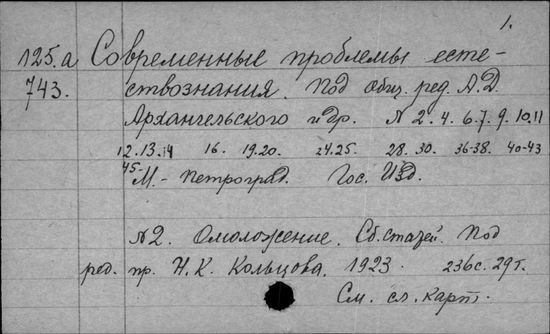 1.
125.а Современные проблемы есте-
743. ствознания. Под общ. ред. А.Д.
Архангельского и др. N 2. 4. 6. 7. 9. 10. 11
12. 13. 14 16. 19. 20. 24. 25. 28. 30. 36-38. 40-43
45.
М. - Петроград. Гос. Изд.
N2. Омоложение. Сб. статей. Под
ред. пр. Н. К. Кольцова. 1923. 236 с. 29 т.
См. сл. карт.